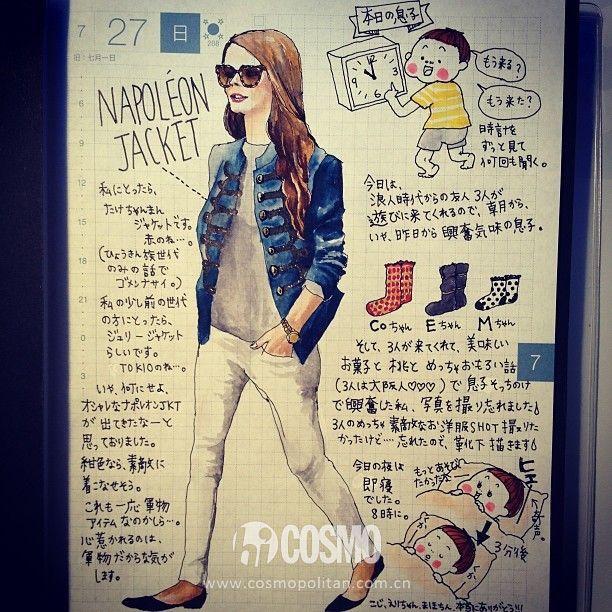 7
27
日
旧：七月一日
208
6
9
12
15
18
21
0
3
7
NAPOLÉON
JACKET
私にとったら、
たけちゃんまん
ジャケットです。
赤のね…。
(ひょうきん族世代
のみの話で
ゴメンナサイ。)
私の少し前の世代
の方にとったら、
ジュリージャケット
らしいです。
TOKIOのね…。
いや、何にせよ、
オシャレなナポレオンJKT
が出てきたなーと
思っておりました。
紺色なら、素敵に
着こなせそう。
これも一応軍物
アイテムなのかしら…。
心惹かれるのは、
軍物だからな気が
します。
本日の息子
もう来る？
もう来た？
時計を
ずっと見て
何回も聞く。
今日は、
浪人時代からの友人3人が
遊びに来てくれるので、朝から、
いや、昨日から興奮気味の息子。
Coちゃん
Eちゃん
Mちゃん
そして、3人が来てくれて、美味しい
お菓子と桃とめっちゃおもろい話
(3人は大阪人♡♡♡)で息子そっちのけ
で興奮した私、写真を撮り忘れました
3人のめっちゃ素敵なお洋服SHOT撮りた
かったけど…忘れたので、靴下描きます
今日の夜は
即寝
でした。
8時に。
もっとあそび
たかったよー
奇声。
3分後
COSMO
www.cosmopolitan.com.cn